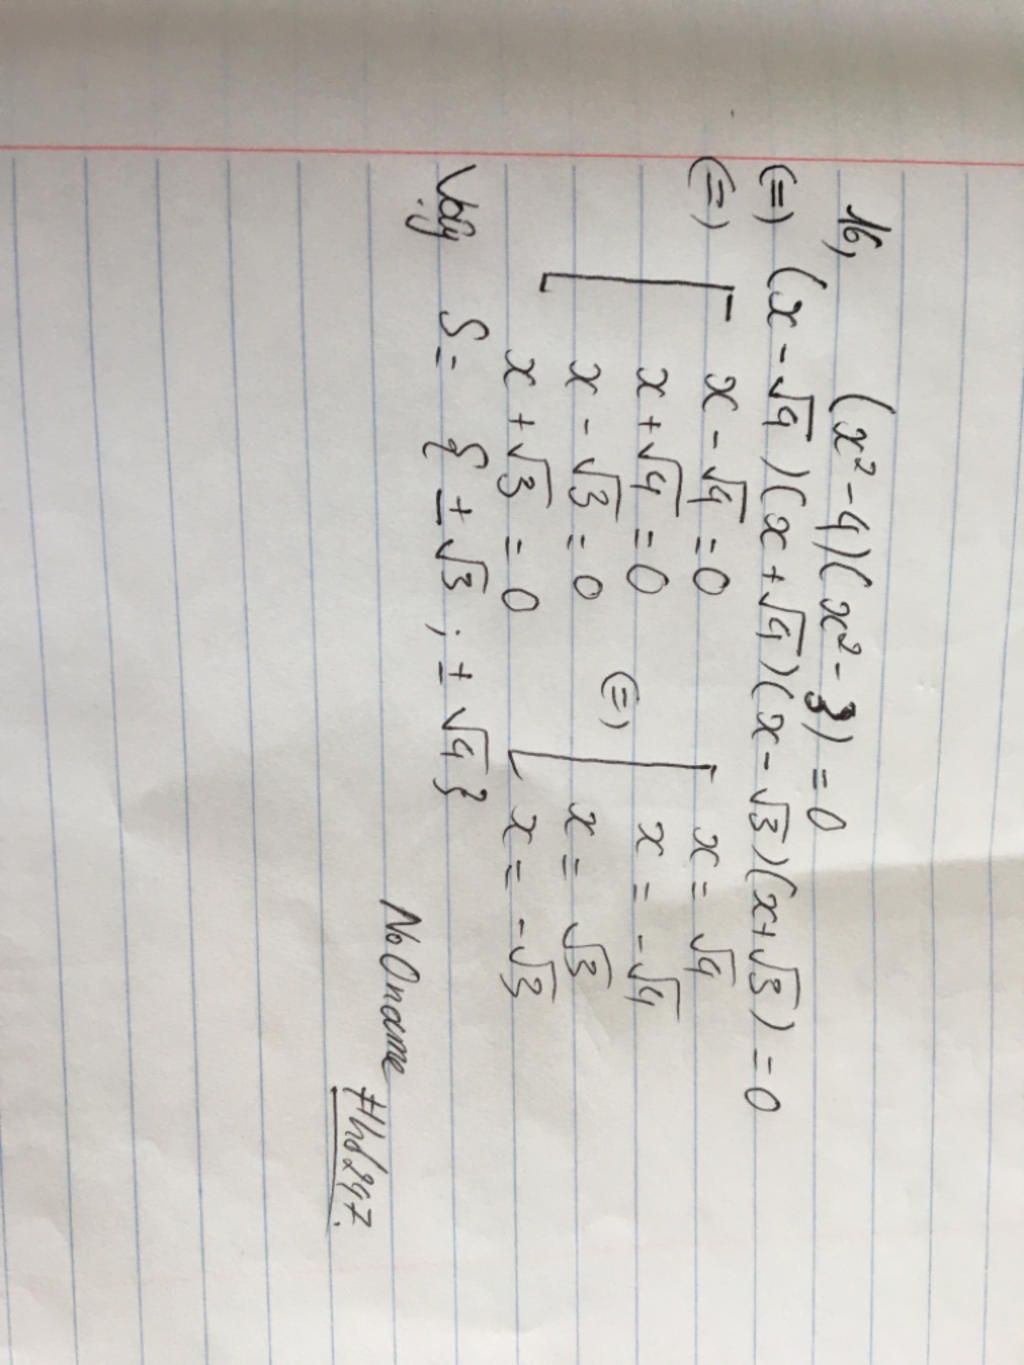 16, (x² - 4)(x² - 3) = 0
(=) (x - √4)(x + √4)(x - √3)(x + √3) = 0
(=) [ x - √4 = 0 (=) [ x = √4
x + √4 = 0 x = -√4
x - √3 = 0 x = √3
x + √3 = 0 x = -√3
Vậy S = { ± √3 ; ± √4 }
NoOname
#hd247.